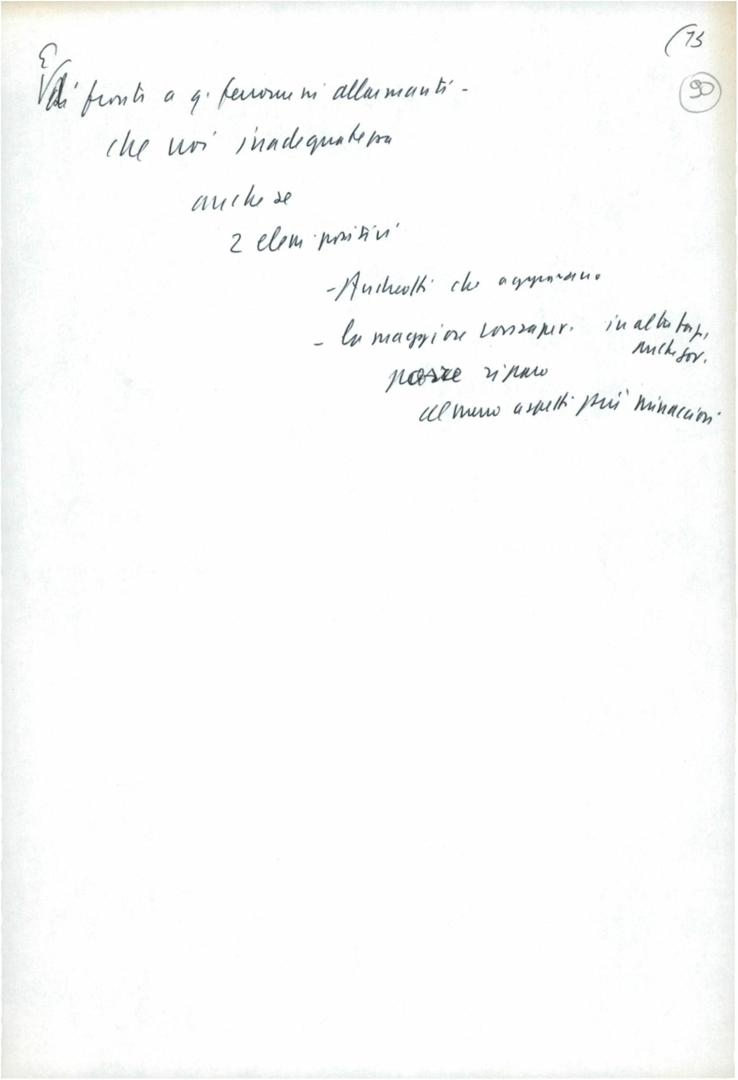 (15
90
E di fronte a q. fenomeni allarmanti -
che noi inadeguatezza
anche se
2 elem. positivi
- Andreotti che
- la maggiore consaper. in altre forze,
anche gov.
porre riparo
almeno aspetti più minacciosi